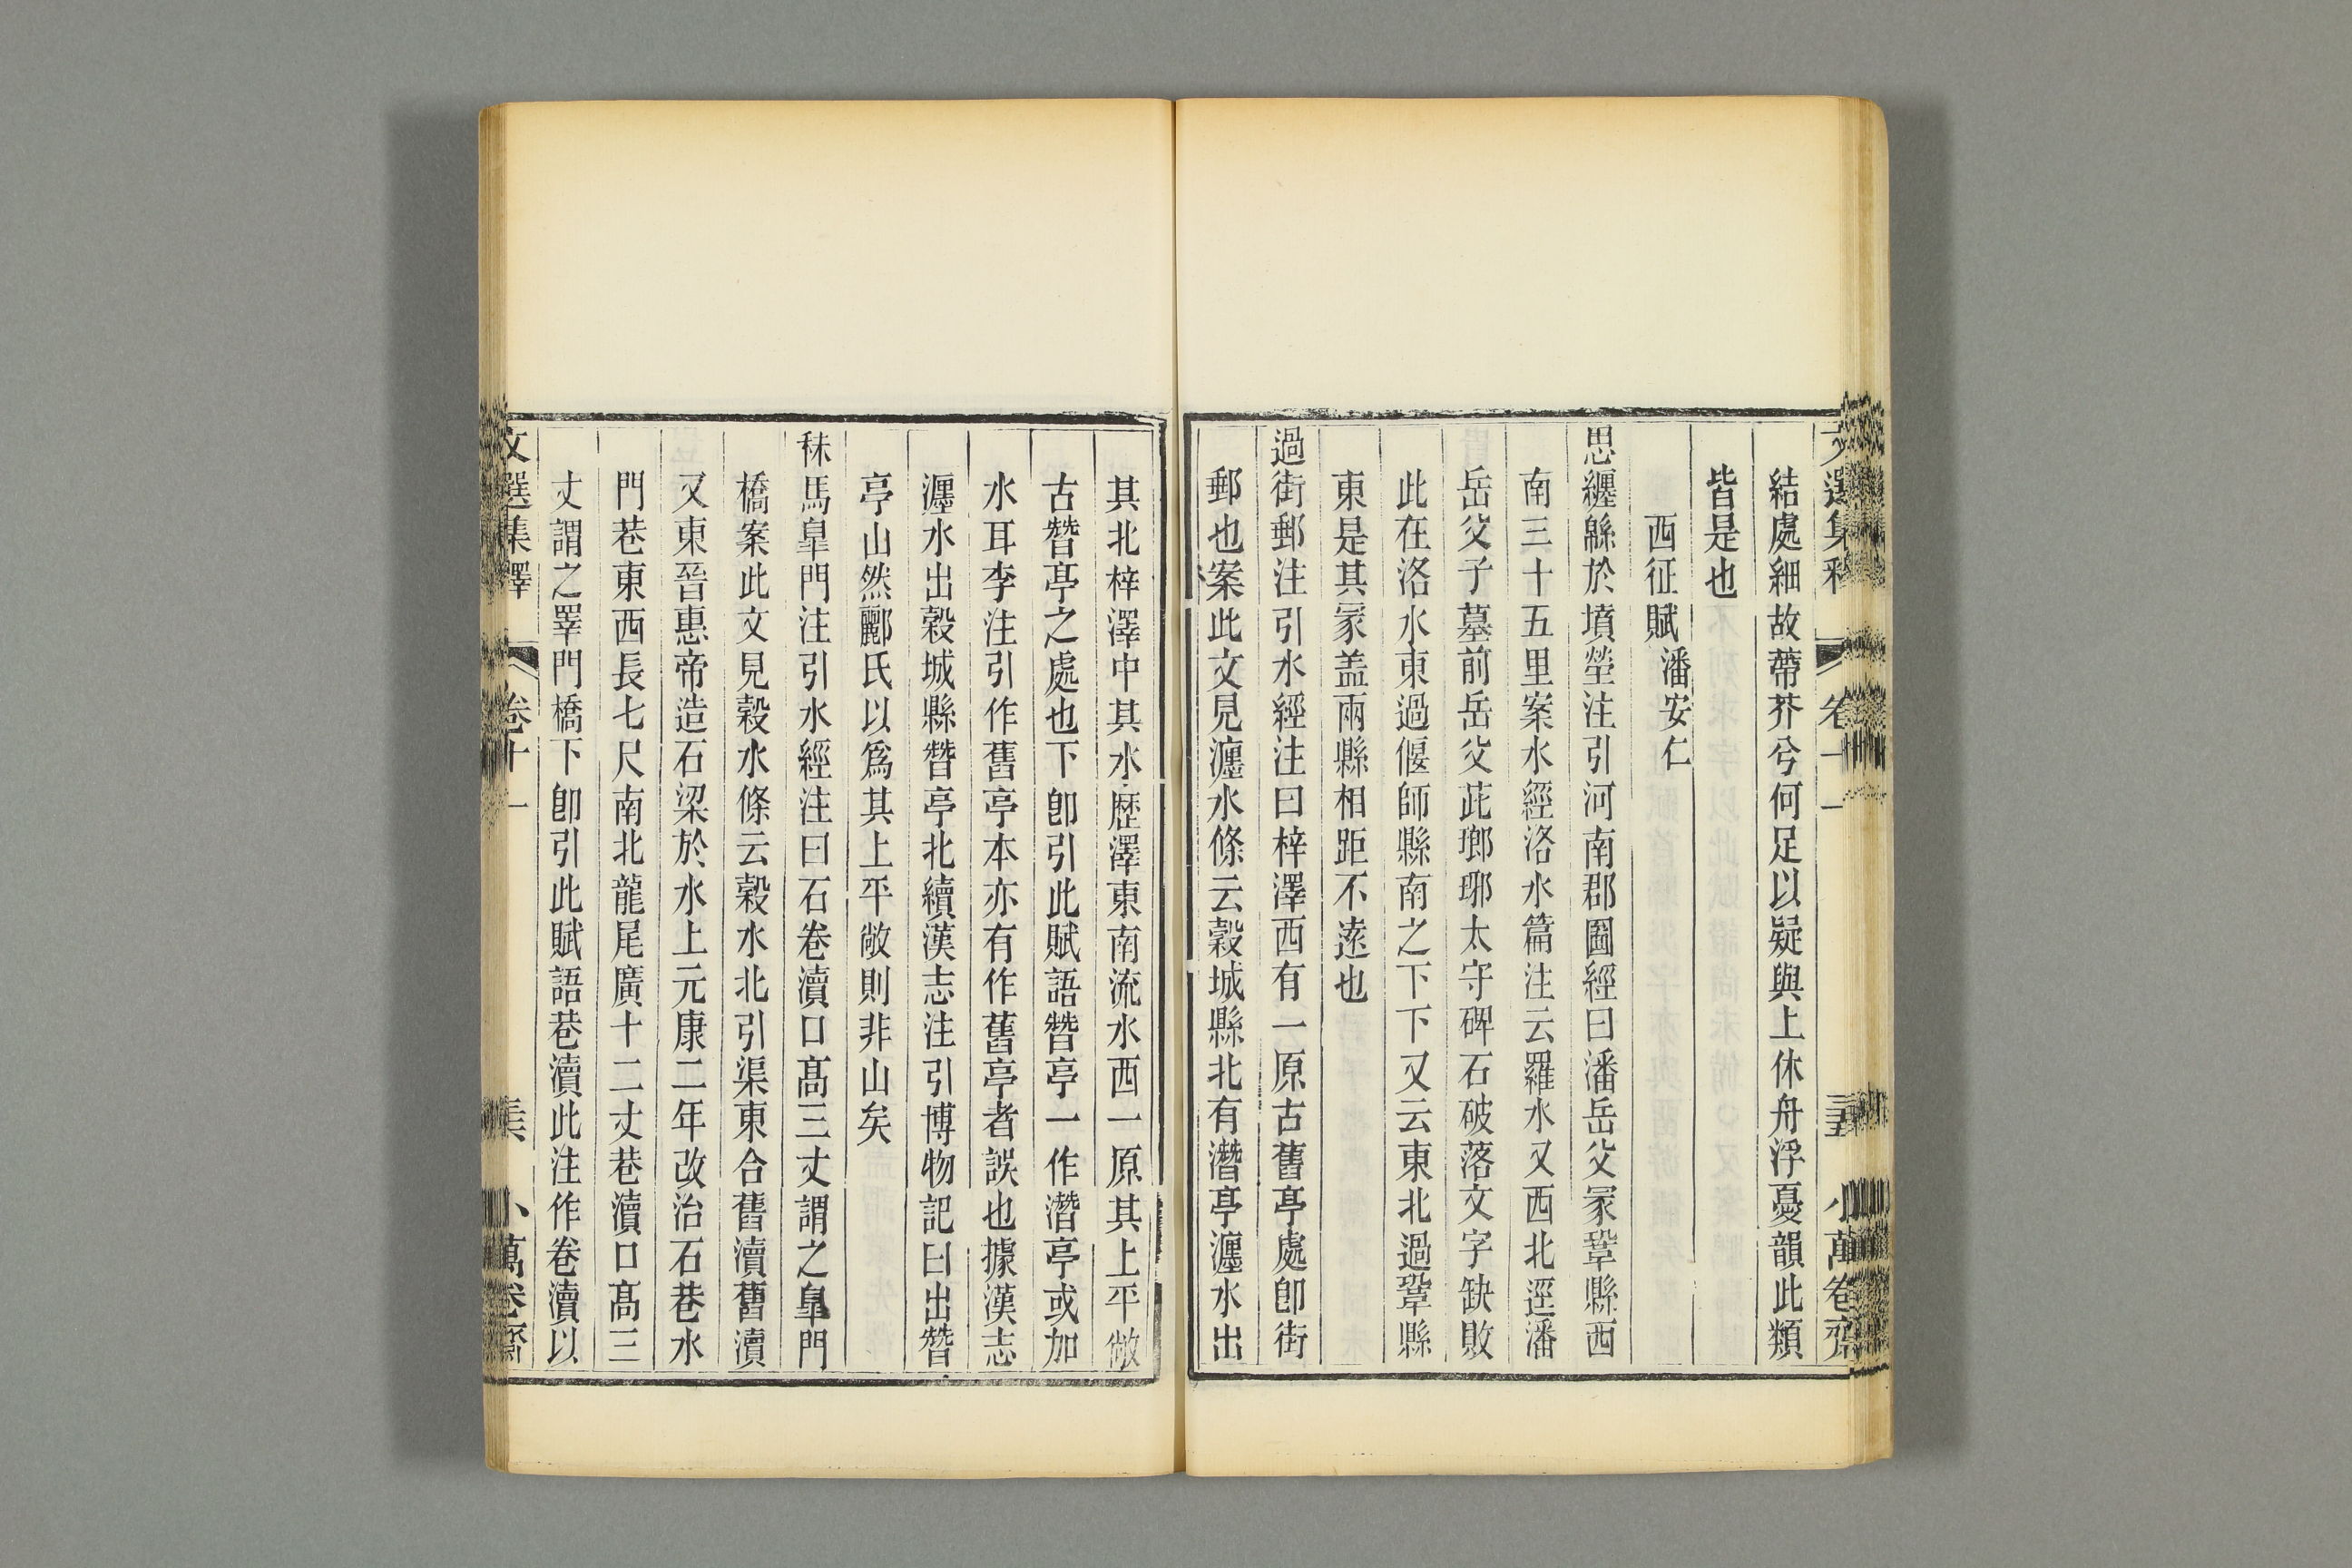 結處細故蔕芥兮何足以疑與上休舟浮憂韻此類
皆是也
西征賦 潘安仁
思纏緜於墳塋注引河南郡圖經曰潘岳父冢鞏縣西
南三十五里案水經洛水篇注云羅水又西北逕潘
岳父子墓前岳父茈瑯琊太守碑石破落文字缺敗
此在洛水東過偃師縣南之下下又云東北過鞏縣
東是其冢盖兩縣相距不遠也
過街郵注引水經注曰梓澤西有一原古舊亭處卽街
郵也案此文見瀍水條云穀城縣北有潛亭瀍水出
其北梓澤中其水歷澤東南流水西一原其上平敞
古朁亭之處也下卽引此賦語朁亭一作潛亭或加
水耳李注引作舊亭本亦有作舊亭者誤也據漢志
瀍水出穀城縣朁亭北續漢志注引博物記曰出朁
亭山然酈氏以爲其上平敞則非山矣
秣馬臯門注引水經注曰石卷瀆口高三丈謂之臯門
橋案此文見穀水條云穀水北引渠東合舊瀆舊瀆
又東晉惠帝造石梁於水上元康二年改治石巷水
門巷東西長七尺南北龍尾廣十二丈巷瀆口高三
丈謂之睪門橋下卽引此賦語巷瀆此注作卷瀆以
文選集釋 卷十一 小萬卷齋